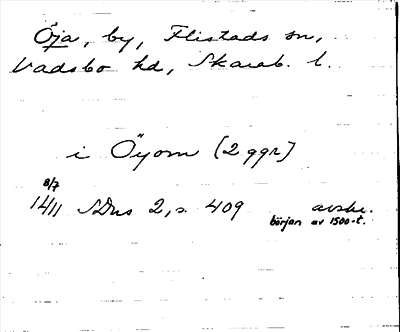 Öja, by, Flistads sn,
Vadsbo hd, Skarab. l.
i Öyom (2 ggr)
8/7
1411 SDns 2, s. 409 avskr.
början av 1500-t.